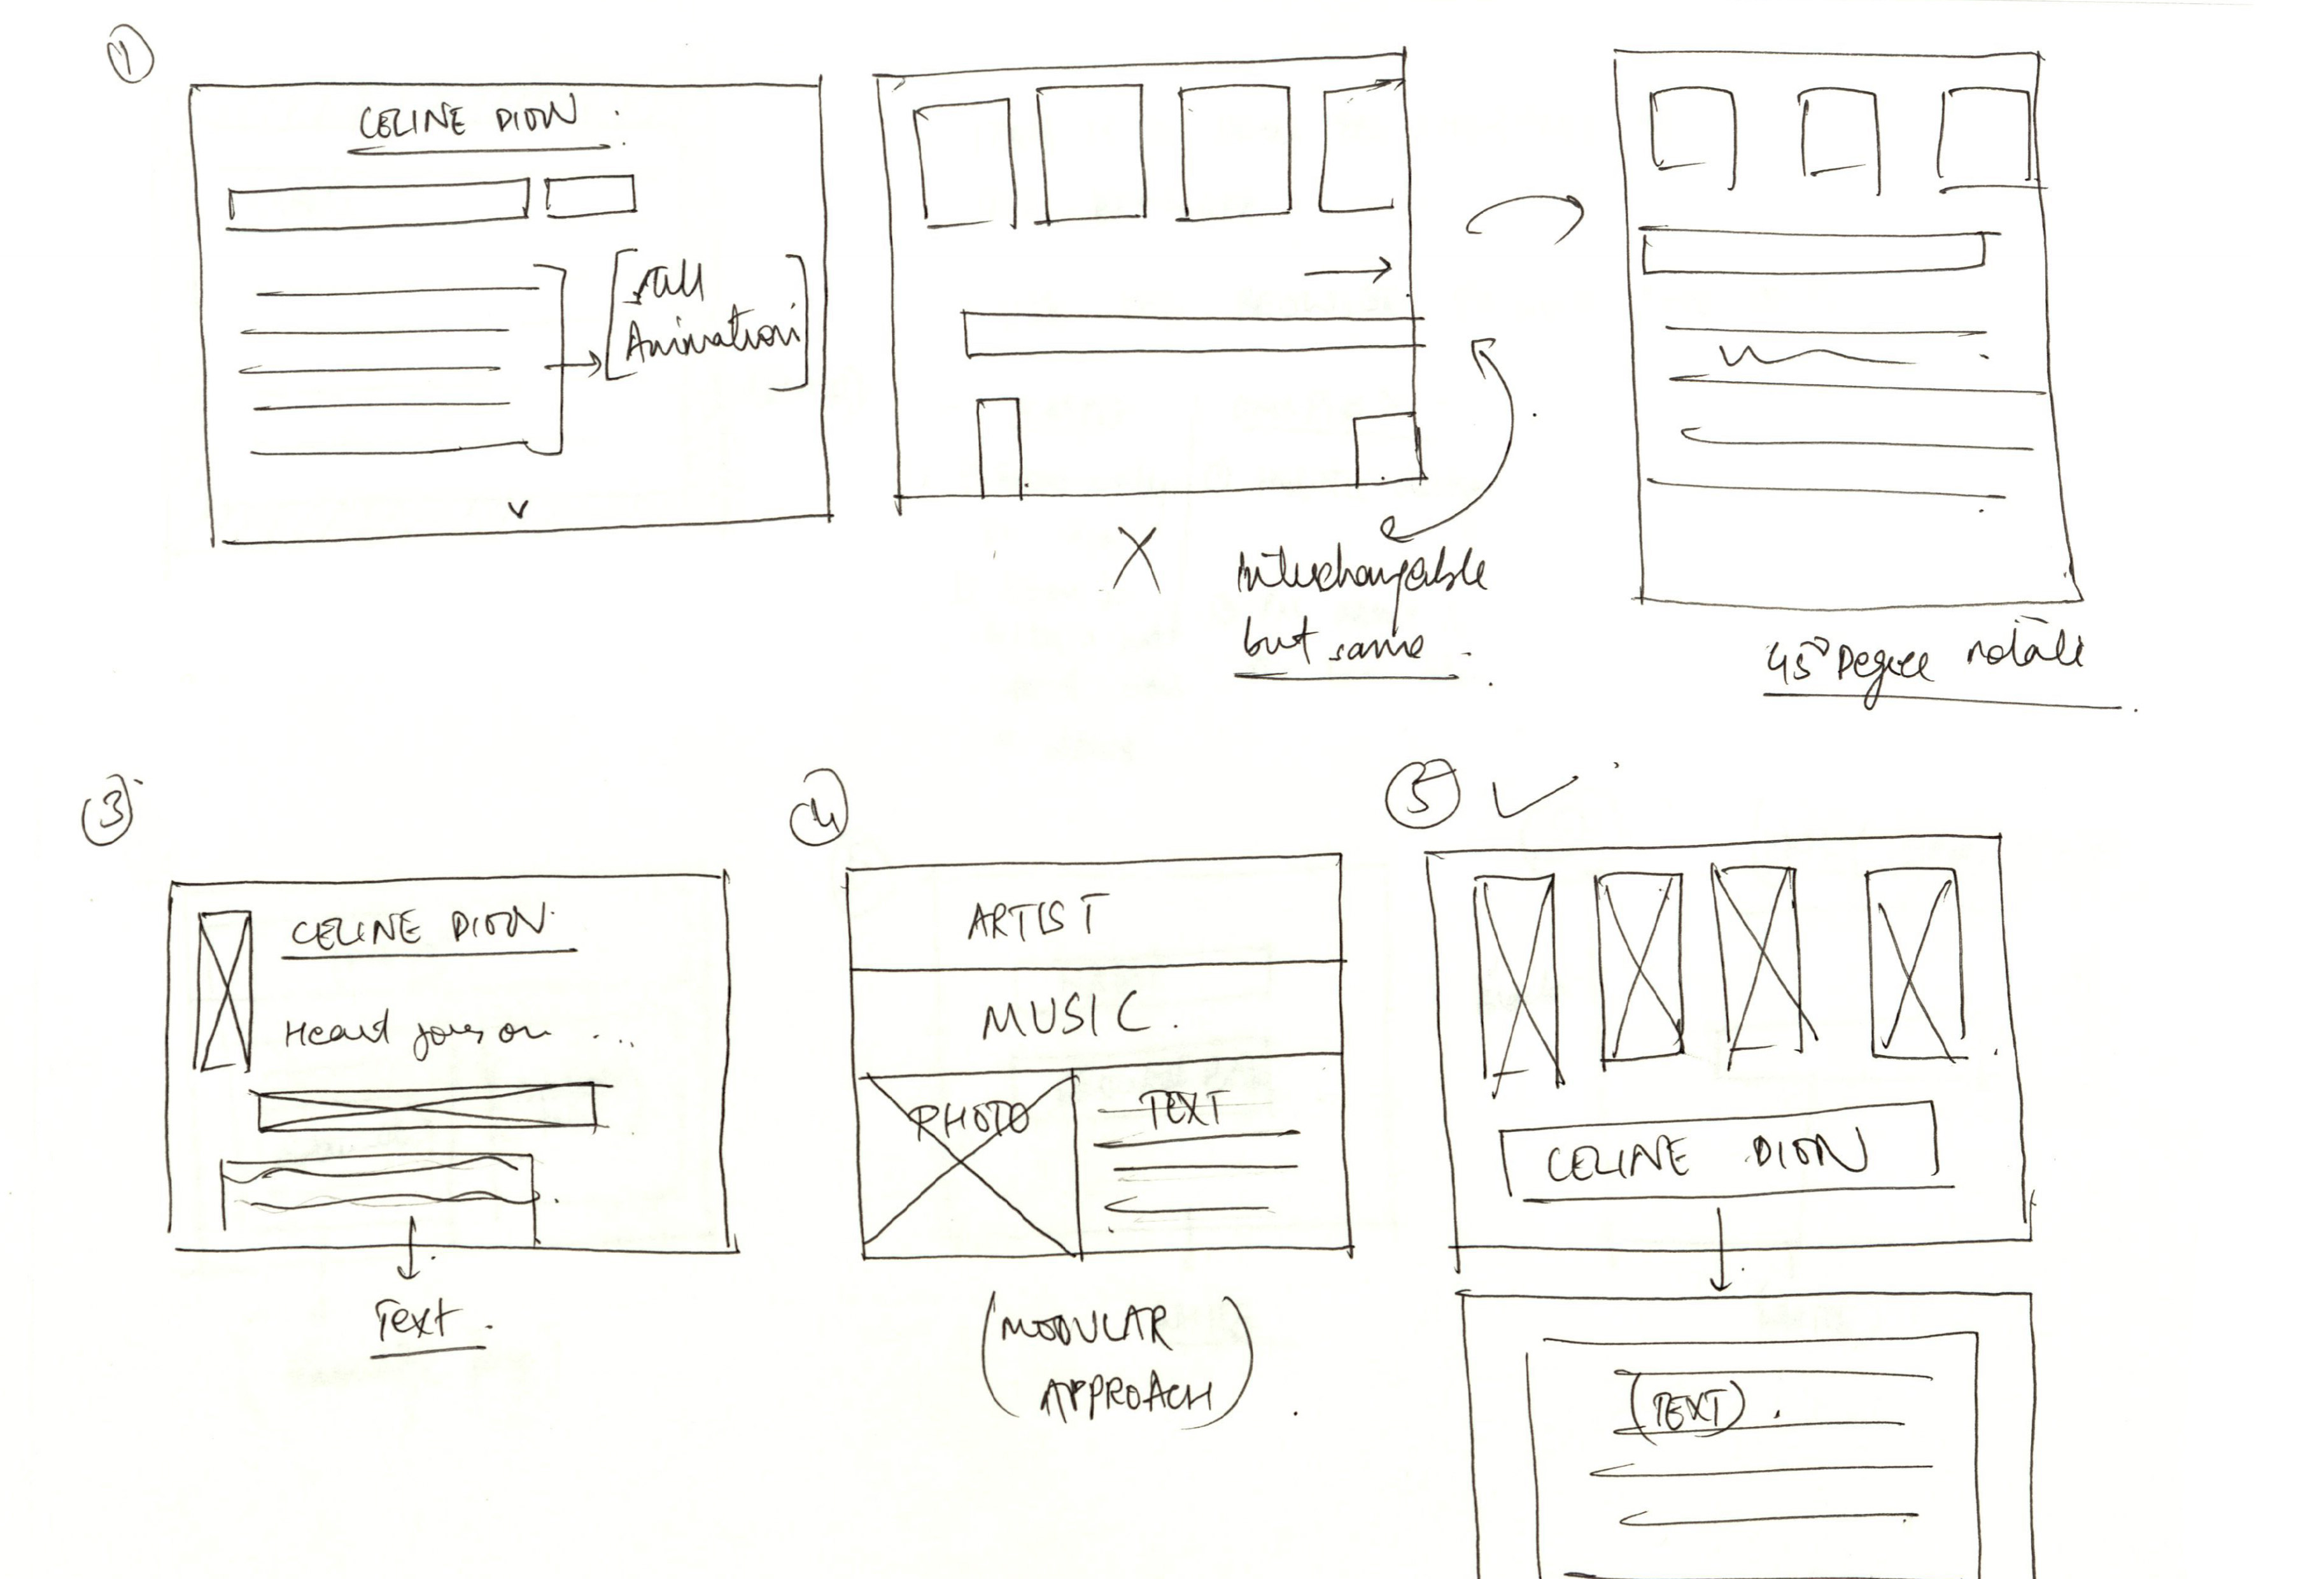 1
CELINE DION
Animation
X
Interchangeable
but same
45° Degree rotate
3
CELINE DION
Heart goes on ...
Text
4
ARTIST
MUSIC
PHOTO
TEXT
(MODULAR
APPROACH)
5
CELINE DION
(TEXT)